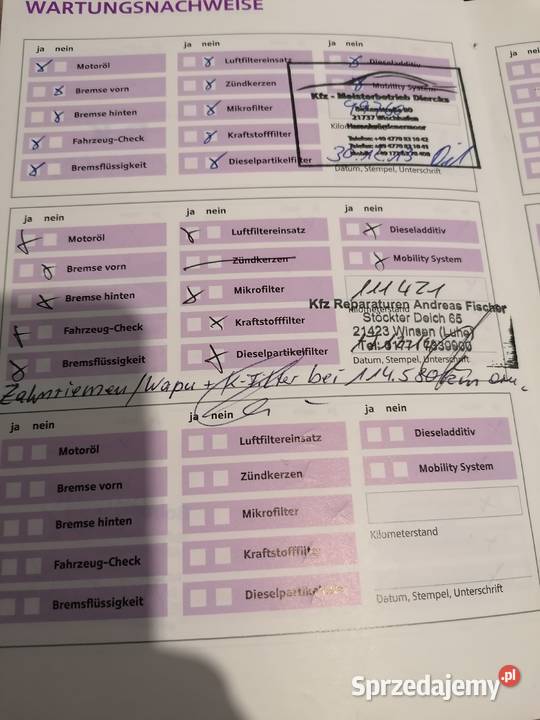 WARTUNGSNACHWEISE
ja nein
ja nein
ja nein
Motoröl
Luftfiltereinsatz
Dieseladditiv
Bremse vorn
Zündkerzen
Mobility System
Bremse hinten
Mikrofilter
Fahrzeug-Check
Kraftstofffilter
Bremsflüssigkeit
Dieselpartikelfilter
Kfz - Meisterbetrieb Diercks
21737 Wischhafen
30.12.13
Datum, Stempel, Unterschrift
ja nein
ja nein
ja nein
Motoröl
Luftfiltereinsatz
Dieseladditiv
Bremse vorn
Zündkerzen
Mobility System
Bremse hinten
Mikrofilter
111421
Kilometerstand
Fahrzeug-Check
Kraftstofffilter
Kfz Reparaturen Andreas Fischer
Stöckter Deich 65
21423 Winsen (Luhe)
Bremsflüssigkeit
Dieselpartikelfilter
Datum, Stempel, Unterschrift
Zahnriemen/Wapu + K-Filter bei 114.580km
ja nein
ja nein
Motoröl
Luftfiltereinsatz
Dieseladditiv
Bremse vorn
Zündkerzen
Mobility System
Bremse hinten
Mikrofilter
Kilometerstand
Fahrzeug-Check
Kraftstofffilter
Bremsflüssigkeit
Dieselpartikelfilter
Datum, Stempel, Unterschrift
Sprzedajemy.pl